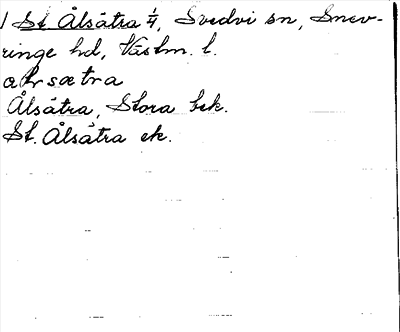 1 St. Ålsätra 1/4, Svedvi sn, Snev-
ringe hd, Västm. l.
Ålsätra, Stora bek.
St. Ålsätra ek.